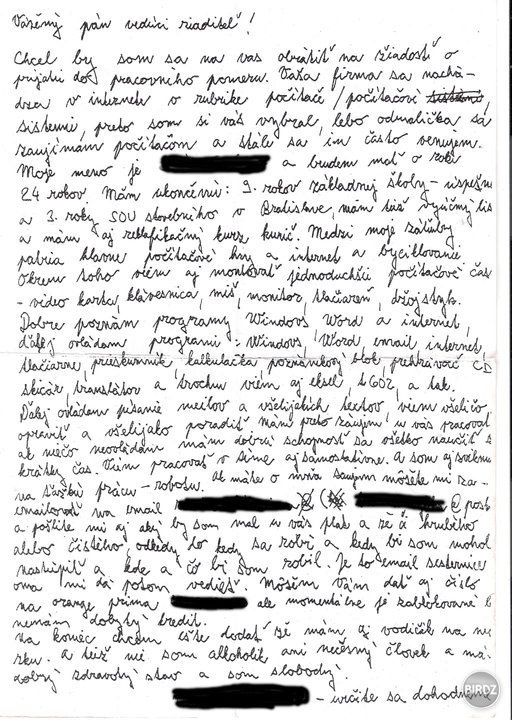 Vážený pán vedúci riaditeľ!
Chcel by som sa na vas obrátiť na žiadosť o
prijatie do pracovního pomeru. Vaša firma sa nachá-
dza v internete v rubrike počítače / počítačoví
sistemi, preto som si vás vybral, lebo odmalička sa
zaujímam počítačom a stále sa im často venujem.
Moje meno je a budem mať o rok
24 rokov. Mám ukončenú: 9. rokov základnej školy - úspešne
a 3. roky SOU stavebního v Bratislave, mám tiež výučný lis
a mám aj reklafikačný kurz kurič. Medzi moje záľuby
patria hlavne počítačové hry a internet a byciklovanie
Okrem toho viem aj montovať jednoduchšie počítačové čas
- video karta, klávesnica, miš, monitor, tlačiareň, džojstyk.
Dobre poznám programy Windovs Word a internet,
ďalej ovládam programi: Windovs, Word, email internet,
tlačiarne, prieskumník, kalkulačka poznámkový blok, prehrávač CD
skicár, translátor a trochu viem aj eksel, 1602, a tak.
Ďalej ovládam písanie meilov a všelijakých textov, viem všeličo
opraviť a všelijako poradiť. Mám preto záujem u vás pracovať
ak niečo neovládam mám dobrú schopnosť sa všetko naučiť s
krátky čas. Viem pracovať v tíme aj samostatne. A som aj zviknu
na ťažkú prácu - robotu. Ak máte o mňa zaujem môšete mi za-
emailovať na email @ ( @post
a pošlite mi aj aký by som mal u vás plat a že či hrubého
alebo čistého, odkedy do kedy sa robí, a kedy bi som mohol
nastúpiť a kde a čo bi som robil. Je to email sesternice
ona mi dá potom vedieť. Môšim Vám dať aj číslo
na orange príma ale momentálne je zablokované l
nemám dobytý kredit.
na koniec chcem ešte dodať že mám aj vodičák na
a tiež nie som alkoholik ani nečesný človek a má
dobrý zdravotný stav a som slobodný.
- určite sa dohodneme
BIRDZ